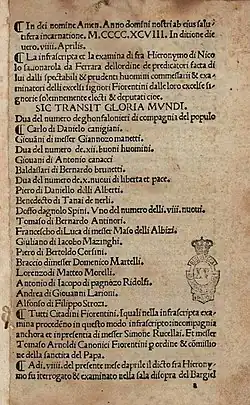 ¶ In dei nomine Amen. Anno domini nostri ab eius salu
tifera incarnatione. M.CCCC.XCVIII. In ditione die
vero. viii. Aprilis.
¶ La infrascripta e la examina di fra Hieronymo di Nico
lo sauonarola da Ferrara dellordine de predicatori facta di
lui dalli spectabili & prudenti huomini commessarii & exa
minatori delli excelsi signori Fiorentini dalle loro excelse si
gnorie solennemente electi & deputati cioe.
SIC TRANSIT GLORIA MVNDI.
Dua del numero de ghonfalonieri di compagnia del populo
¶ Carlo di Daniello canigiani.
Giouãni di messer Giannozo manetti.
Dua del numero de. xii. buoni huomini.
Giouani di Antonio canacci
Baldassari di Bernardo brunetti.
Dua del numero de. x. nuoui di liberta et pace.
Piero di Daniello delli Alberti.
Benedecto di Tanai de nerli.
Doffo dagnolo Spini. Vno del numero delli. viii. nuoui.
Tomaso di Bernardo Antinori.
Francescho di Luca di messer Maso delli Albizi.
Giuliano di Iacobo Mazinghi.
Piero di Bertoldo Corsini.
Braccio di messer Domenico Martelli.
Lorenzo di Matteo Morelli.
Antonio di Iacopo di pagnozo Ridolfi.
Andrea di Giouanni Larioni.
Alfonso di Filippo Stroza.
¶ Tutti Citadini Fiorentini. I quali nella infrascripta exa
mina procedono in questo modo infrascripto in compagnia
anchora et in presentia di messer Simone Rucellai. Et messer
Tomaso Arnoldi Canonici Fiorentini p ordine & cõmissio
ne della sanctita del Papa.
¶ A di. viiii. del presente mese daprile il dicto fra Hierony
mo fu iterrogato & examinato nella sala disopra del Bargiel
a
XV